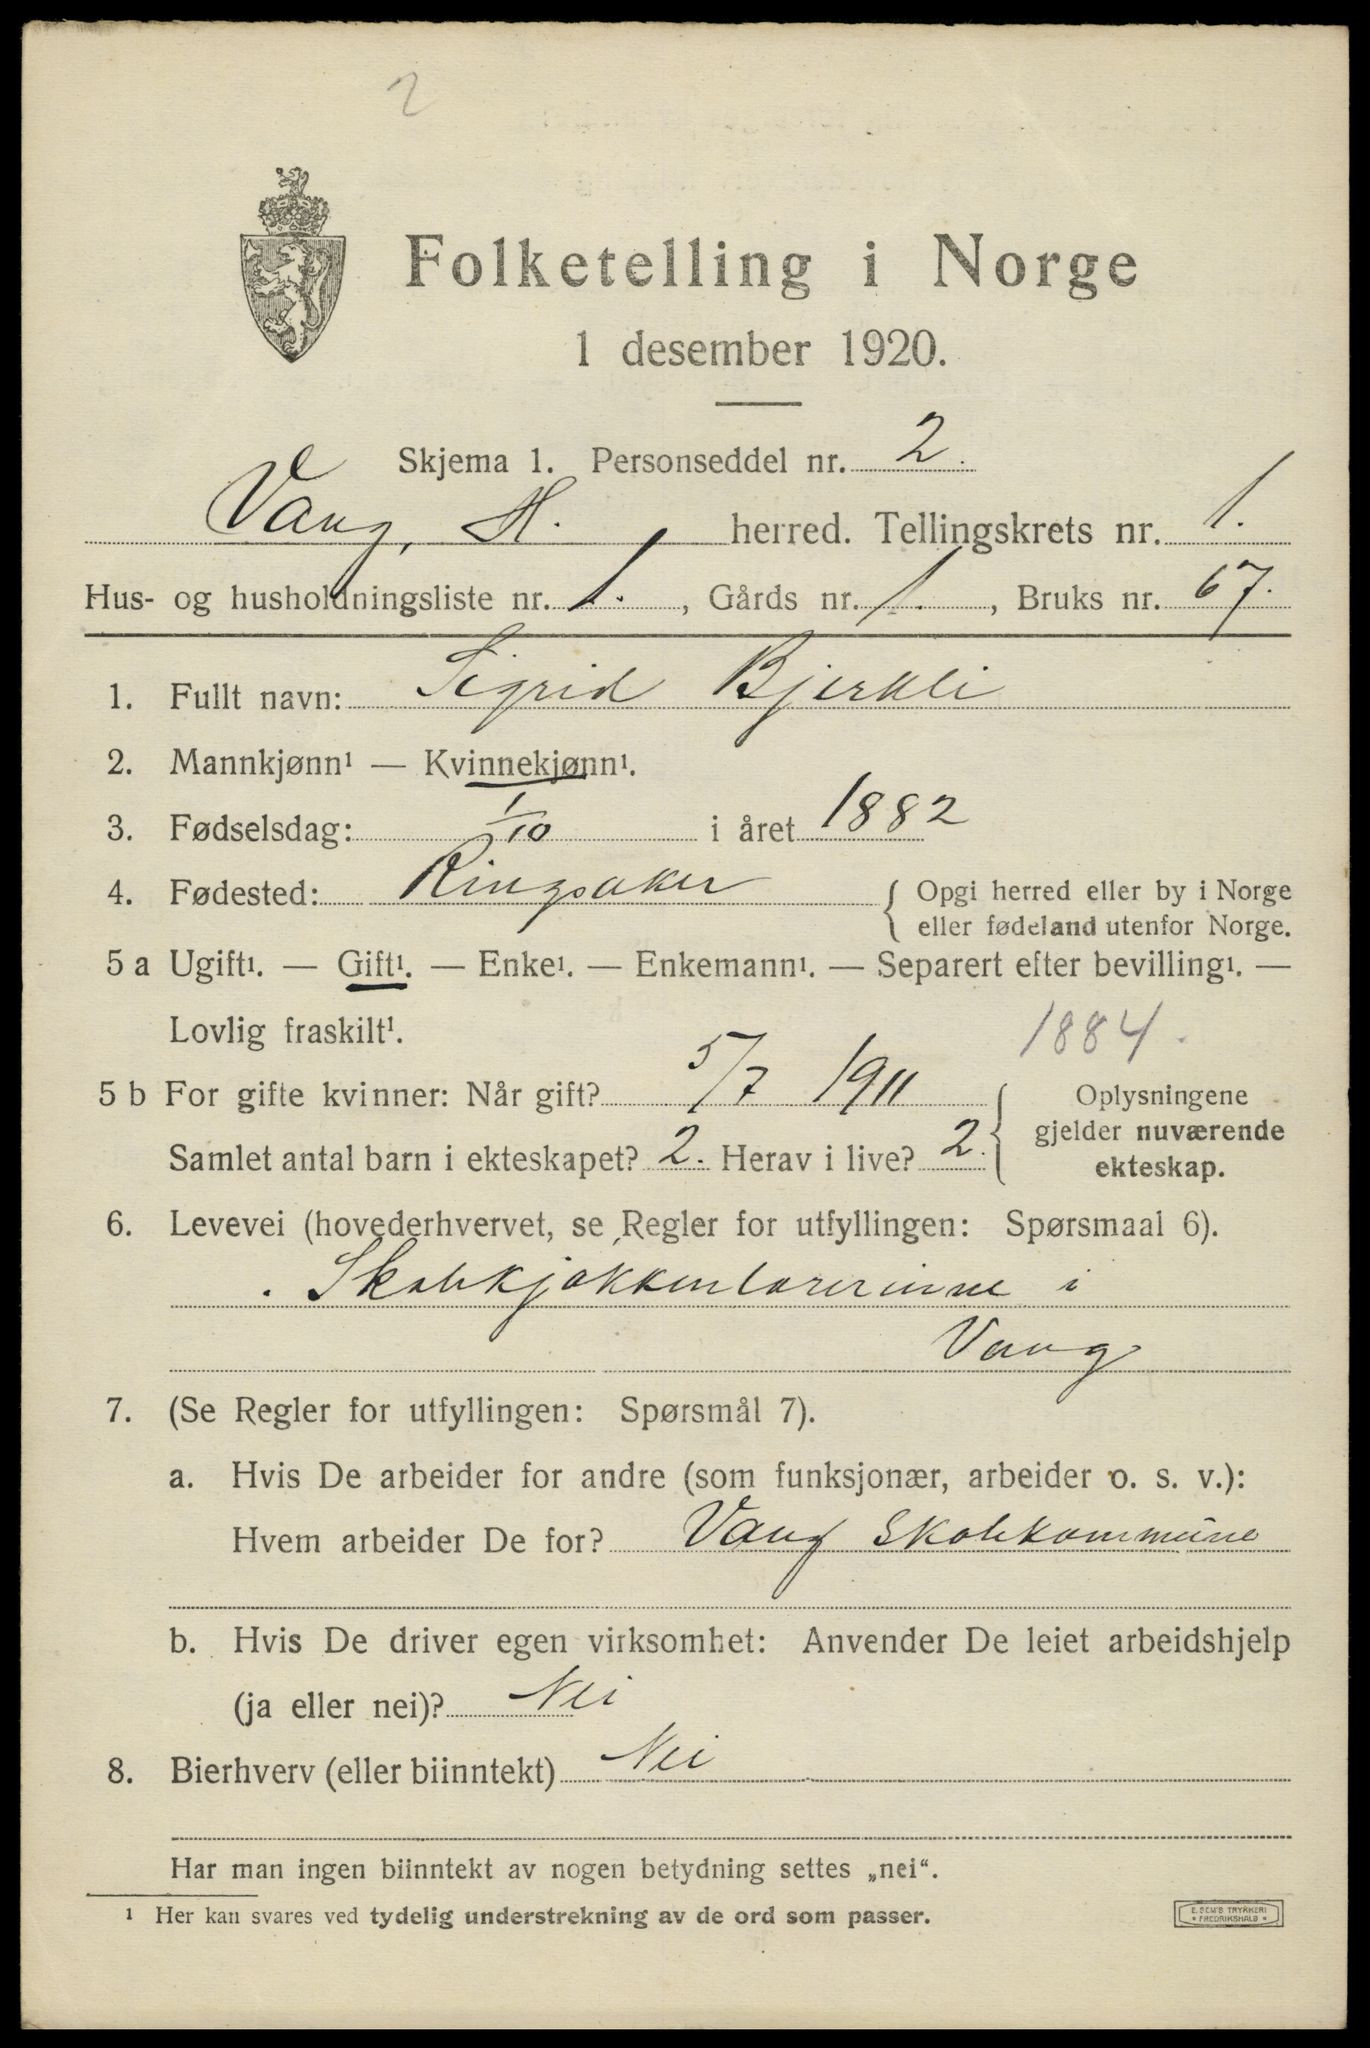 2
Folketelling i Norge
1 desember 1920.
Skjema 1. Personseddel nr. 2.
Vang, H. herred. Tellingskrets nr. 1.
Hus- og husholdningsliste nr. 1., Gårds nr. 1., Bruks nr. 67.
1. Fullt navn: Sigrid Bjerkli
2. Mannkjønn¹ — Kvinnekjønn¹.
3. Fødselsdag: 1/10 i året 1882
4. Fødested: Ringsaker { Opgi herred eller by i Norge
eller fødeland utenfor Norge.
5 a Ugift¹. — Gift¹. — Enke¹. — Enkemann¹. — Separert efter bevilling¹. —
Lovlig fraskilt¹.
1884.
5 b For gifte kvinner: Når gift? 5/7 1911 { Oplysningene
gjelder nuværende
Samlet antal barn i ekteskapet? 2. Herav i live? 2.
ekteskap.
6. Levevei (hovederhvervet, se Regler for utfyllingen: Spørsmaal 6).
Skolekjøkkenlærerinne i
Vang
7. (Se Regler for utfyllingen: Spørsmål 7).
a. Hvis De arbeider for andre (som funksjonær, arbeider o. s. v.):
Hvem arbeider De for? Vang Skolekommune
b. Hvis De driver egen virksomhet: Anvender De leiet arbeidshjelp
(ja eller nei)? Nei
8. Bierhverv (eller biinntekt) Nei
Har man ingen biinntekt av nogen betydning settes „nei“.
¹ Her kan svares ved tydelig understrekning av de ord som passer.
E. SEM'S TRYKKERI
* FREDRIKSHALD *